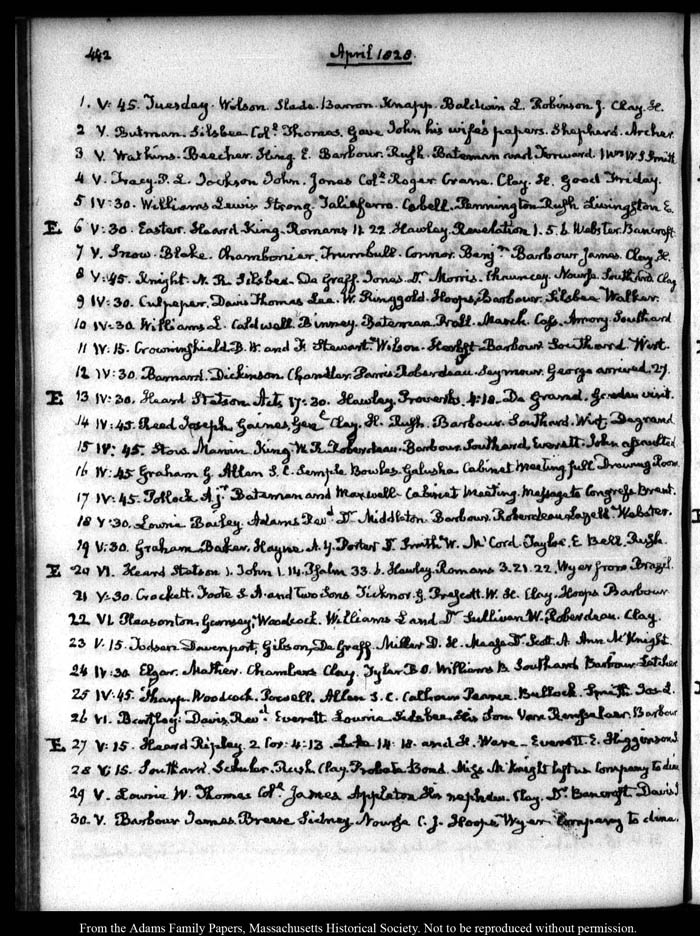 442
April 1828.
1. V: 45. Tuesday. Wilson. Slade. Barron. Knapp. Baldwin L. Robinson J. Clay. H.
2 V. Butman. Silsbee Colº Thomas. Gave John his wife's papers. Shepherd. Archer.
3 V. Watkins. Beecher. King E. Barbour. Rush. Bateman and Forward. Smith
4 V. Tracy. P. L. Jackson John. Jones Colº Roger. Crane. Clay. H. Good Friday.
5 IV:30. Williams Lewis Strong. Taliaferro. Cabell. Pennington Rush Livingston E.
E 6 V:30. Easter. Heard King. Romans 11. 22 Hawley. Revelation 1. 5. 6 Webster. Bancroft.
7 V. Snow. Blake. Chambonier. Trumbull. Connor. Benjn Barbour James. Clay H.
8 V:45. Knight. N. R. Silsbee. De Graff. Jones Dr Morris. Chauncey. Nourse. Southard. Clay
9 IV:30. Culpeper. Davis Thomas Lee. W. Ringgold. Hoops. Barbour. Silsbee Walker.
10 IV:30. Williams L. Coldwell. Binney. Bateman. March. Amory. Southard
11 IV:15. Crowninshield. B. W. and F. Stewart. Wilson. Barbour. Southard Wirt.
12 IV:30. Barnard. Dickinson Chandler. Parris Roberdeau. Seymour. George arrived. 27.
E 13 IV:30. Heard Stetson Acts 17:30. Hawley. Proverbs 4:18. De Grand. visit.
14 IV:45. Reed Joseph Gaines Genl Clay. H. Rush. Barbour. Southard. Wirt. Degrand
15 IV:45. Stow. Marvin. King. W. R. Roberdeau. Barbour. Southard. Everett. John assaulted
16 IV:45 Graham G Allan S. C. Semple. Bowles. Galusha Cabinet Meeting full Drawing Room
17 IV:45. Pollock. A. Jr Bateman and Maxwell. Cabinet Meeting. Message to Congress Brent.
18 V:30. Lowrie Bailey. Adams Revd Dr Middleton. Barbour. Roberdeau. Webster.
19 V:30. Graham. Baker. Hayne. A. Y. Porter Smith W. McCord. Taylor. E Bell. Rush.
E 20 VI. Heard Stetson 1. John 1. 14. Psalm 33. 6. Hawley. Romans 3. 21. 22. Wyer from Brazil.
21 V:30. Crockett. Foote S A. and two Sons Ticknor. G. Prescott. W. H. Clay. Hoops Barbour
22 VI. Pleasonton. Woodcock. Williams L and Dr Sullivan. W. Roberdeau. Clay.
23 V:15. Davenport, Gilson, De Graff. Miller D. H. Mease Dr Scott. A Ann McKnight.
24 IV:30 Elgar. Mather. Chambers Clay. Tyler B O. Williams Southard Barbour.
25 IV:45. Tharp. Woodcock. Powell. Allan S. C. Calhoun Pearce. Bullock. Smith Jas L.
26 VI. Bartley. Davis. Revd Everett. Lowrie. Silsbee. His Son. Van Rensselaer. Barbour
E 27 V:15. Heard Ripley. 2 Cor: 4:13. Luke 14:18. and H. Ware. Everett. E. Higginson
28 V:15. Southard. Rush. Clay. Probate Bond. Miss McKnight left us Company to dine
29 V. Lowrie W. Thomas Colº James Appleton his nephew. Clay. Dr Bancroft Davis
30. V. Barbour James. Breese Sidney. Nourse C. J. Hoops Wyer Company to dine.
From the Adams Family Papers, Massachusetts Historical Society. Not to be reproduced without permission.